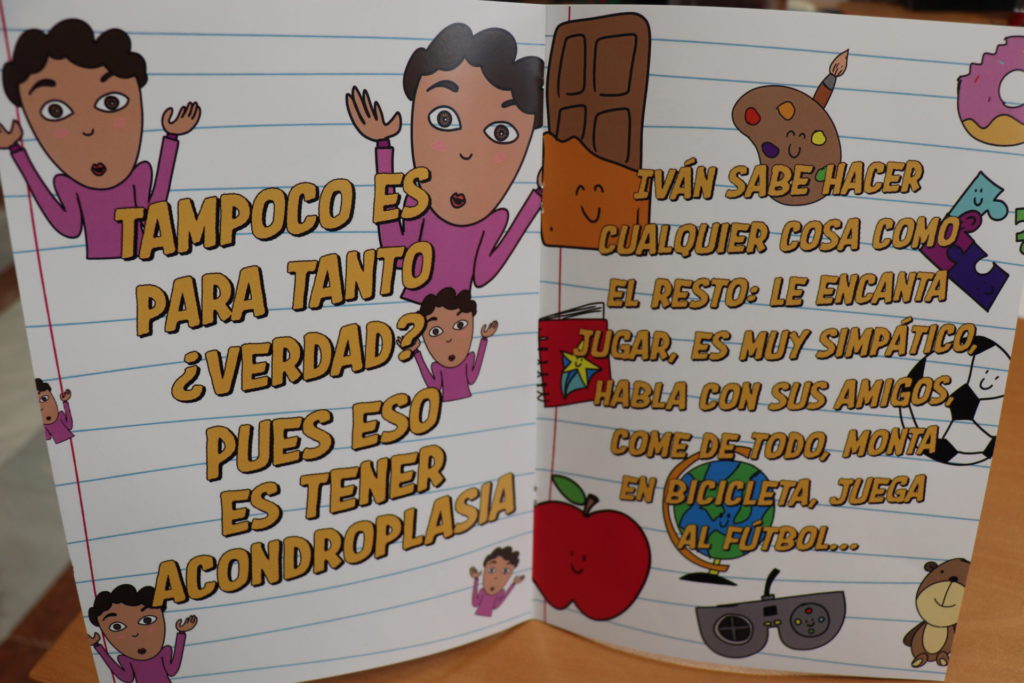 TAMPOCO ES
PARA TANTO
¿VERDAD?
PUES ESO
ES TENER
ACONDROPLASIA
IVÁN SABE HACER
CUALQUIER COSA COMO
EL RESTO: LE ENCANTA
JUGAR, ES MUY SIMPÁTICO,
HABLA CON SUS AMIGOS,
COME DE TODO, MONTA
EN BICICLETA, JUEGA
AL FÚTBOL...